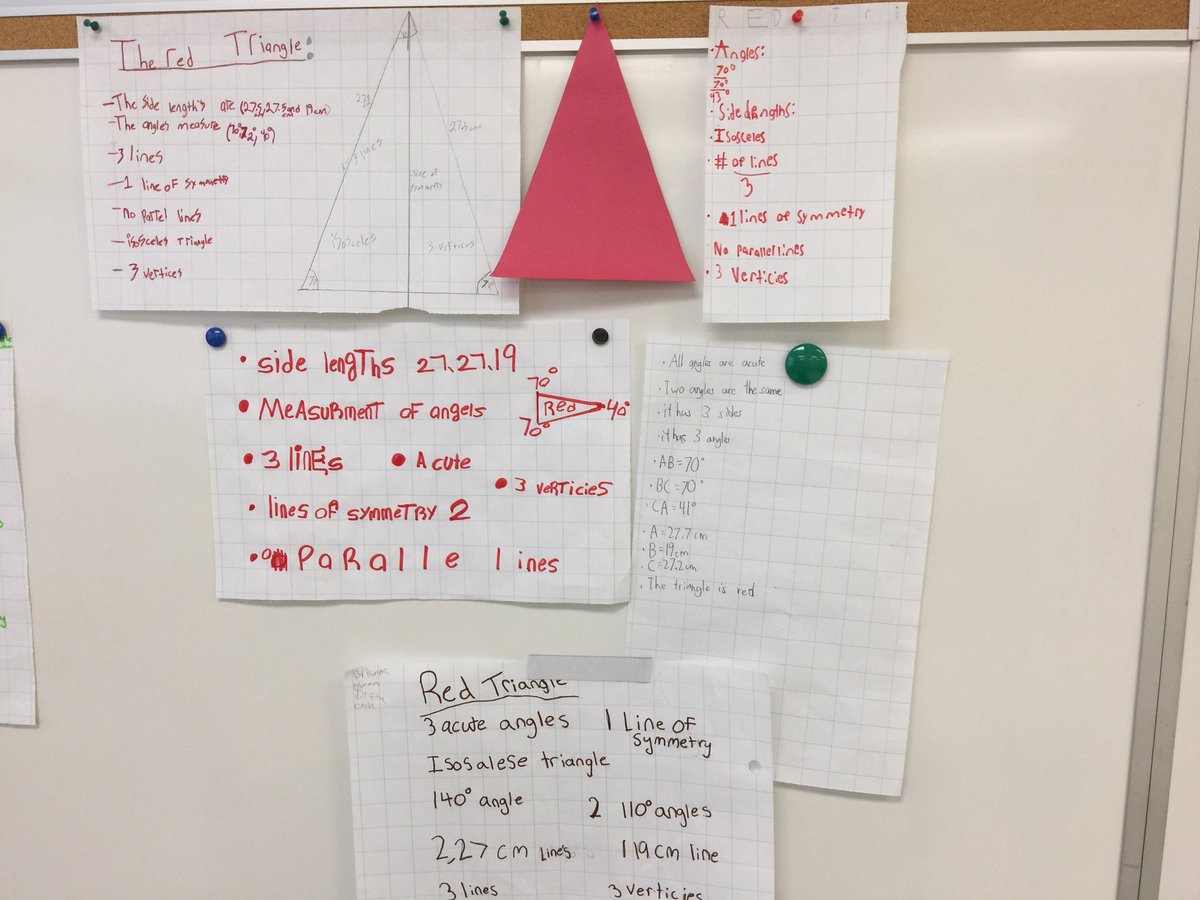 The red Triangle:
-The side length's are (27.5, 27.5 and 19cm)
-The angles measure
-3 lines
-1 line of symmetry
-no parlel lines
-isosceles triangle
-3 vertices
3 lines
27.5cm
line of
symmetry
isosceles
3 vertices
RED
• Angles:
70°
70°
43°
• Side lengths:
• Isosceles
• # of lines
3
• 1 lines of symmetry
No parallel lines
• 3 Verticies
• side lengths 27,27,19
• Measurment of angels
70°
Red
40°
70°
• 3 lines
• Acute
• 3 verticies
• lines of symmetry 2
• Paralle lines
• All angles are acute
• Two angles are the same
• it has 3 sides
• it has 3 angles
• AB=70°
• BC=70°
• CA=41°
• A=27.7cm
• B=19cm
• C=27.2cm
• The triangle is red
Red Triangle
3 acute angles
1 Line of
symmetry
Isosalese triangle
140° angle
2 110° angles
2,27 cm lines
1 19cm line
3 lines
3 verticies